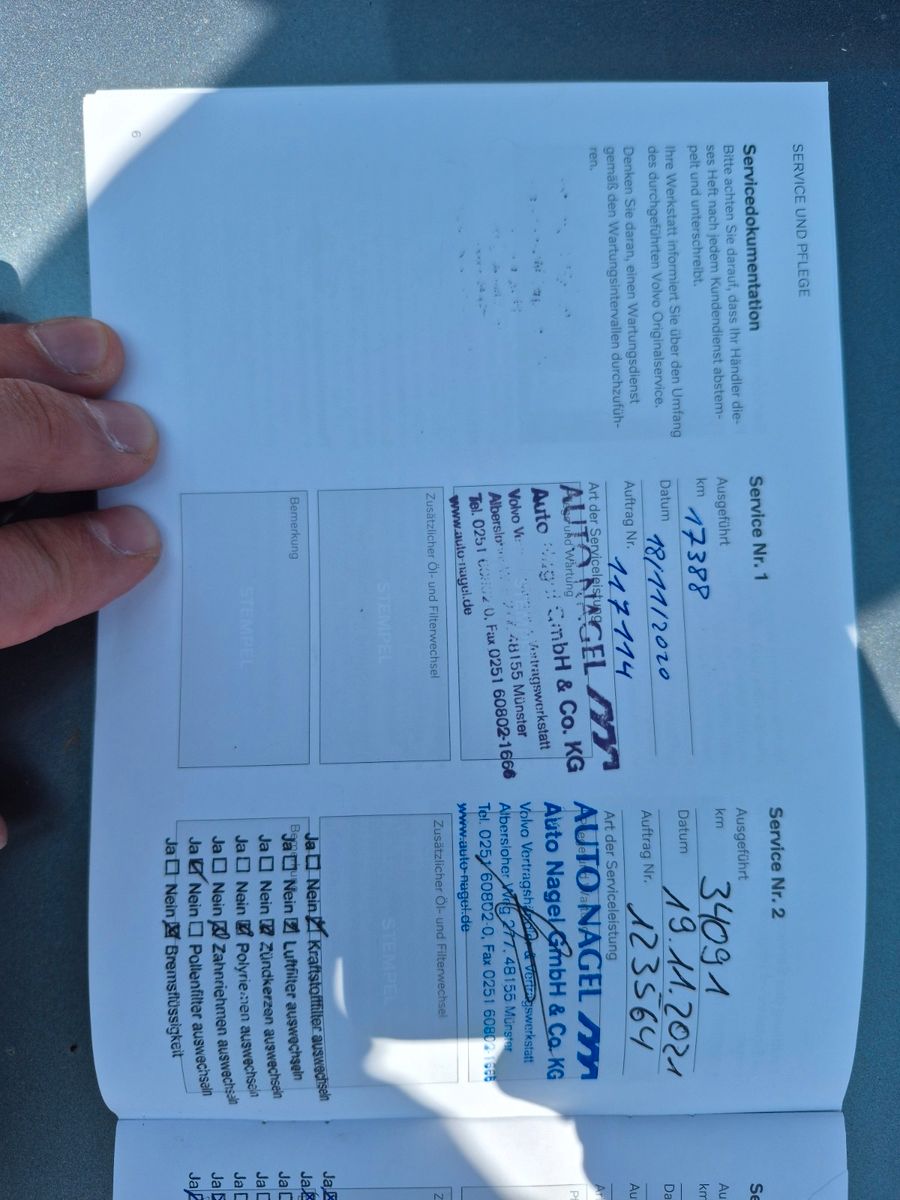 SERVICE UND PFLEGE
Servicedokumentation
Bitte achten Sie darauf, dass Ihr Händler die-
ses Heft nach jedem Kundendienst abstem-
pelt und unterschreibt.
Ihre Werkstatt informiert Sie über den Umfang
des durchgeführten Volvo Originalservice.
Denken Sie daran, einen Wartungsdienst
gemäß den Wartungsintervallen durchzufüh-
ren.
6
Service Nr. 1
Ausgeführt
km 17388
Datum 18/11/2020
Auftrag Nr. 117114
Art der Serviceleistung
und Wartung
AUTO NAGEL
Auto Nagel GmbH & Co. KG
Volvo Vertragswerkstatt
48155 Münster
Tel. 0251 60802-0, Fax 0251 60802-1666
www.auto-nagel.de
Zusätzlicher Öl- und Filterwechsel
STEMPEL
Bemerkung
STEMPEL
Service Nr. 2
Ausgeführt
km 34091
Datum 19.11.2021
Auftrag Nr. 123564
Art der Serviceleistung
AUTO NAGEL
Auto Nagel GmbH & Co. KG
Volvo Vertragshändler & Vertragswerkstatt
Albersloher Weg 277, 48155 Münster
Tel. 0251 60802-0, Fax 0251 60802-1666
www.auto-nagel.de
Zusätzlicher Öl- und Filterwechsel
STEMPEL
Ja Nein Kraftstofffilter auswechseln
Ja Nein Luftfilter auswechseln
Ja Nein Zündkerzen auswechseln
Ja Nein Polyriemen auswechseln
Ja Nein Zahnriehmen auswechseln
Ja Nein Pollenfilter auswechseln
Ja Nein Bremsflüssigkeit
km
Ja
Ja
Ja
Ja
Ja
Ja
Ja